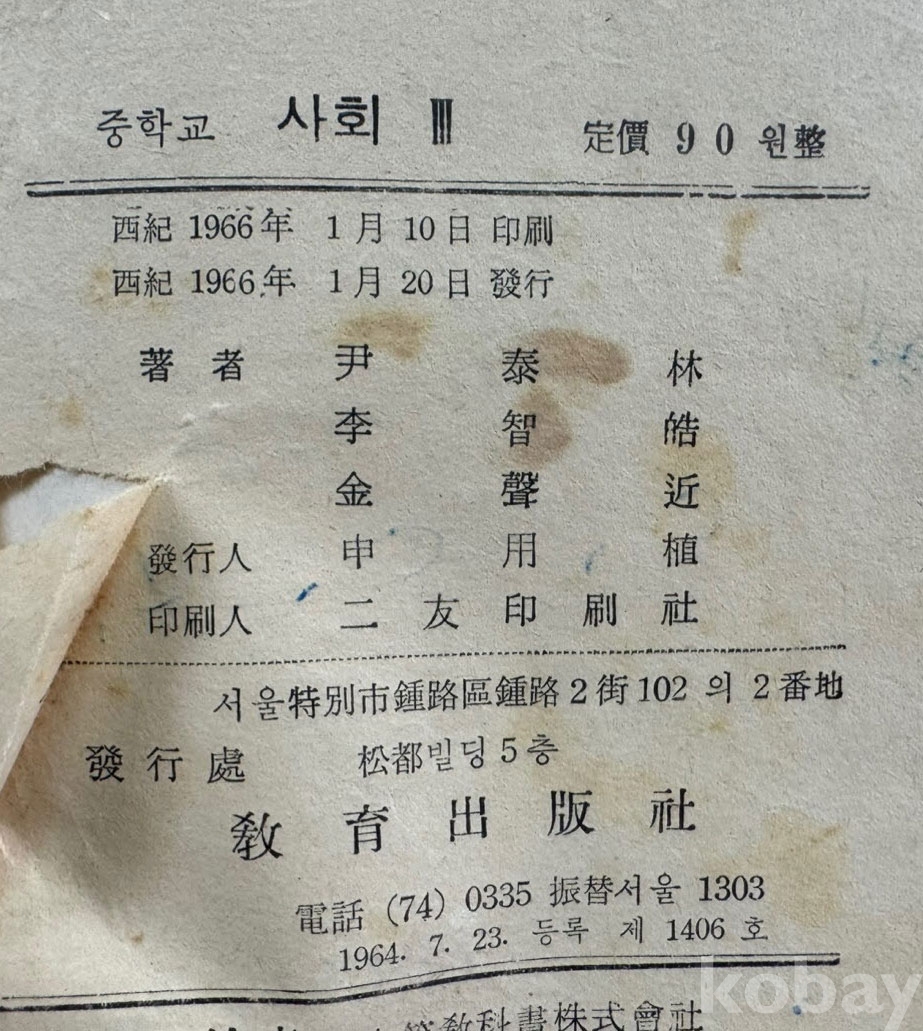 중학교 사회 Ⅲ 定價 90 원整
西紀 1966年 1月 10日 印刷
西紀 1966年 1月 20日 發行
著者 尹泰林
李智皓
金聲近
發行人 申用植
印刷人 二友印刷社
서울特別市鍾路區鍾路2街102의 2番地
發行處 松都빌딩5층
敎育出版社
電話 (74) 0335 振替서울 1303
1964. 7. 23. 등록 제 1406 호
敎科書株式會社
kobay